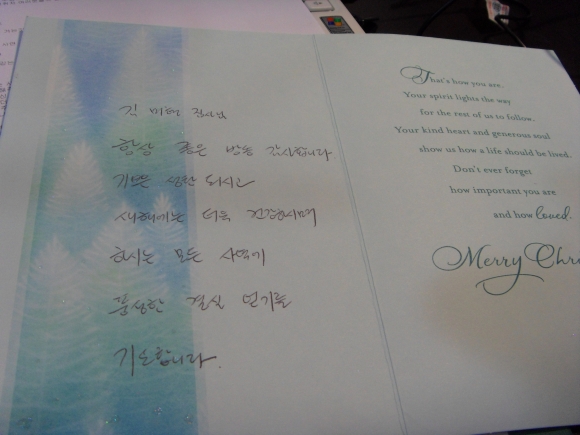 항상 좋은 방송 감사합니다
기쁜 성탄 되시고
새해에는 더욱 건강하시며
하시는 모든 사역이
풍성한 결실 맺기를
기도합니다.
That's how you are.
Your spirit lights the way
for the rest of us to follow.
Your kind heart and generous soul
show us how a life should be lived.
Don't ever forget
how important you are
and how loved.
Merry Chri